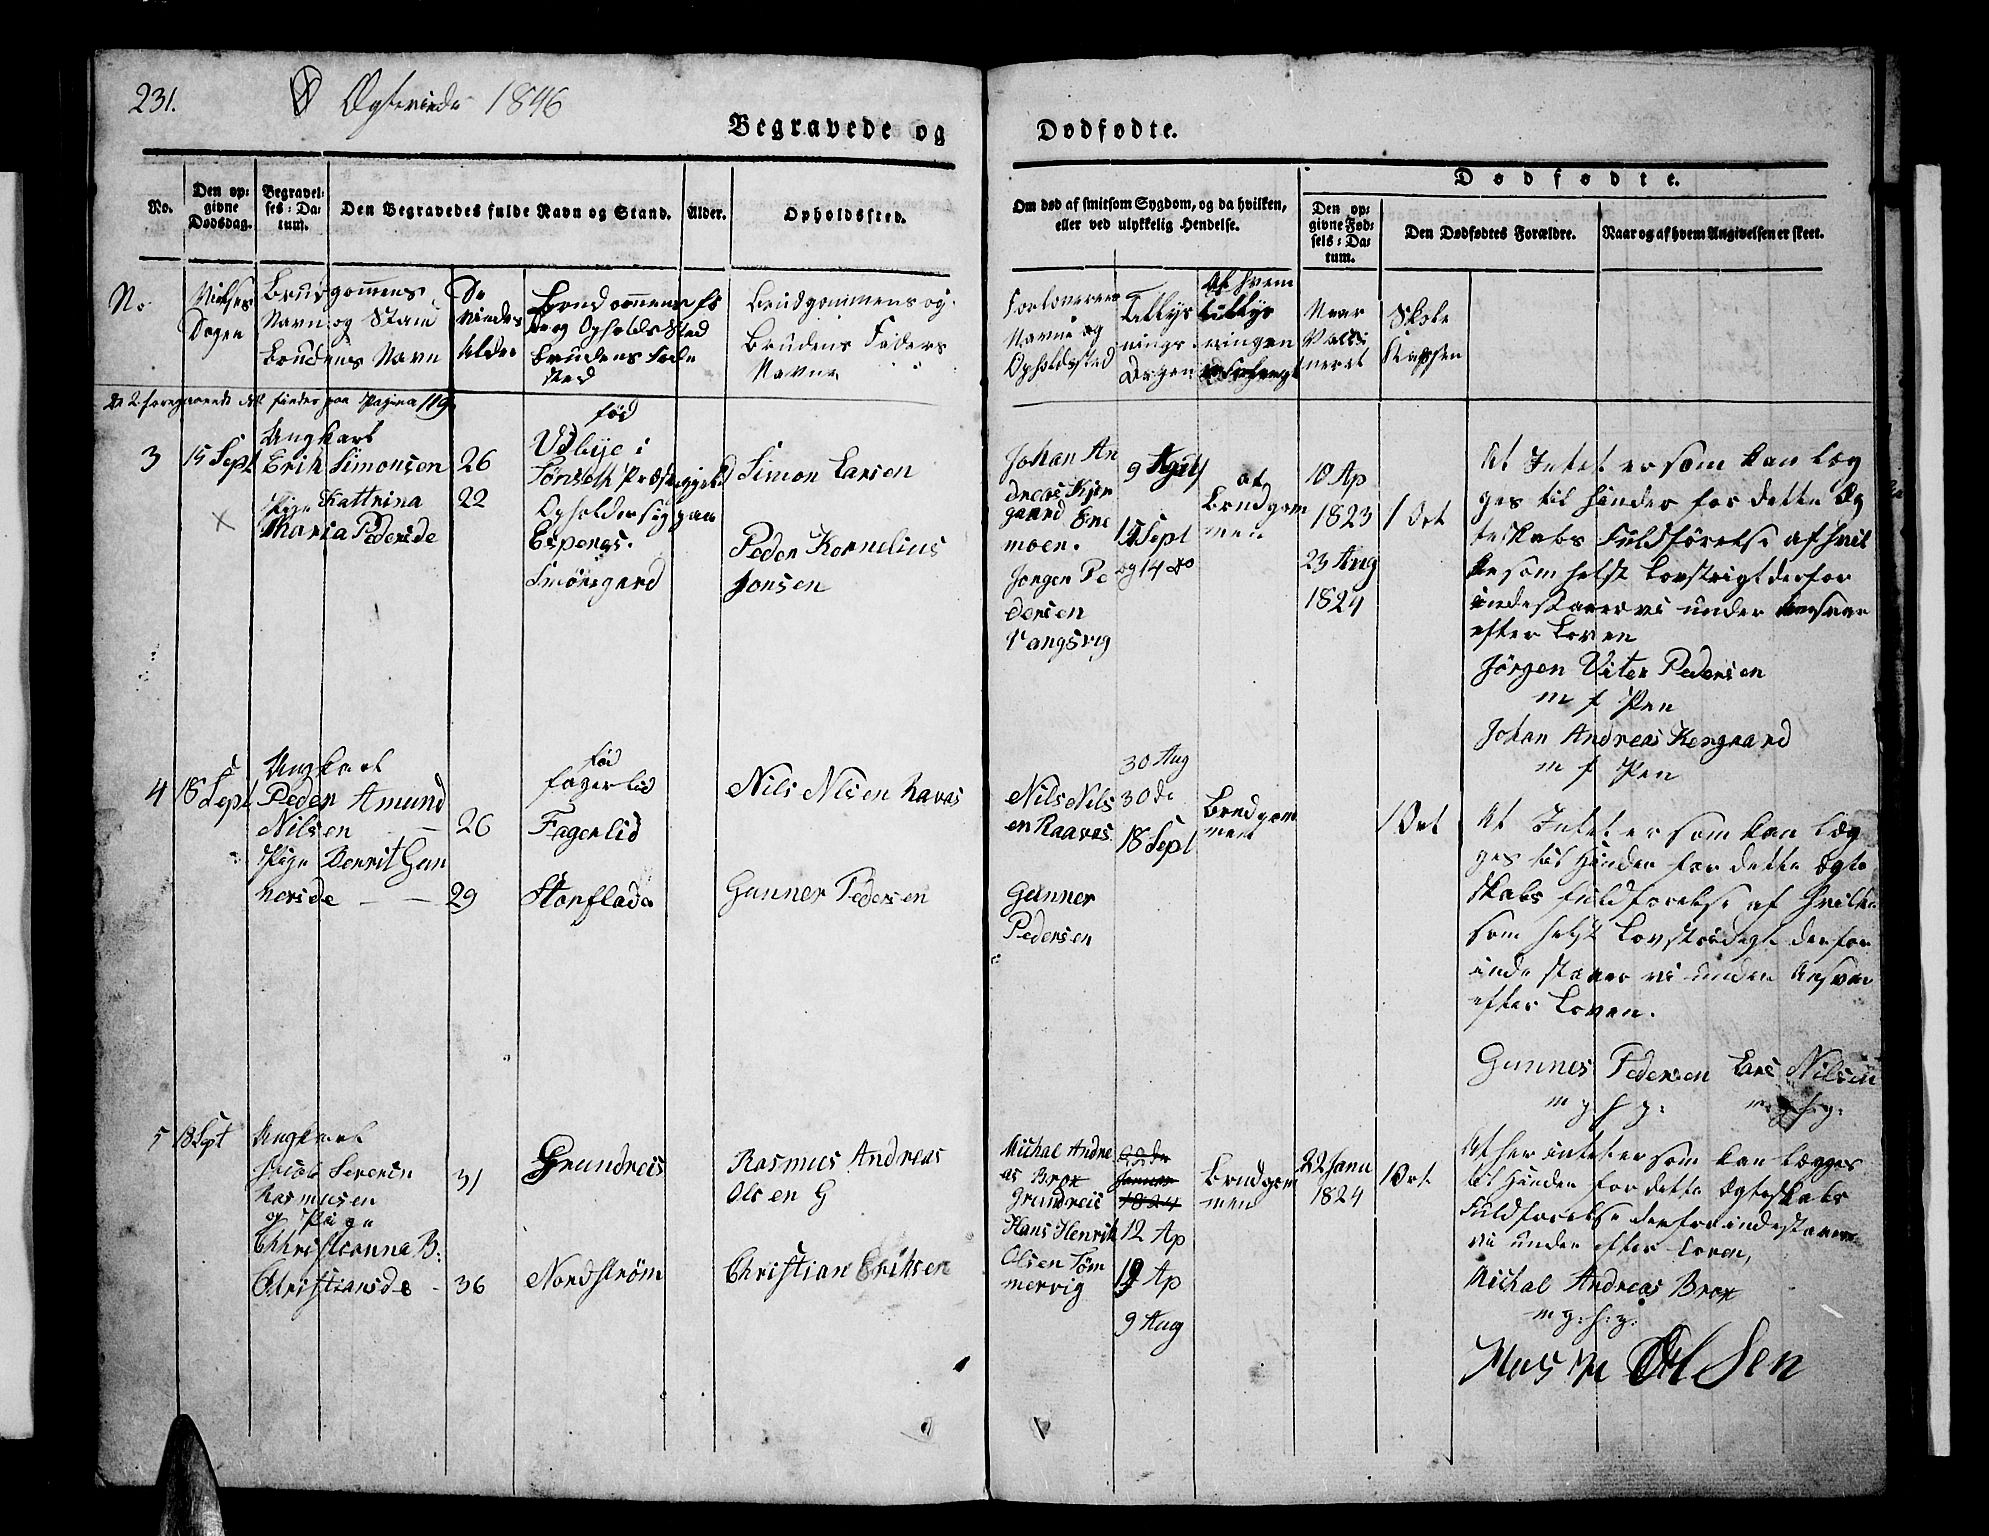 231.
Ægteviede 1846
Begravede og
Dødfødte.
No.
Den op=
givne
Dødsdag.
Begravel=
ses=Da=
tum.
Den Begravedes fulde Navn og Stand.
Alder.
Opholdssted.
Om død af smitsom Sygdom, og da hvilken,
eller ved ulykkelig Hendelse.
Dødfødte.
Den op=
givne Fød=
sels=Da=
tum.
Den Dødfødtes Forældre.
Naar og af hvem Angivelsen er skeet.
No
Vielses
Dagen
Brudgommens
Navn og Stand
Brudens Navn
De
viedes
Alder
Brudgommens Fø
de og Opholds Sted
Brudens Føde
sted
Brudgommens og
Brudens Faders
Navne
Forlovernes
Navne og
Opholdssted
Tillys
nings
Dagen
Af hvem
tillys
ningen
Naar
Vacci
neret
Skole
Kassen
De 2 foregaaende findes paa Pagina 119
3
15 Sept
Ungkarl
Erik Simonsen
Pige Kattrina
Maria Pedersde
26
22
fød
Udbye i
Opholder sig paa
Espenes.
Simon Larsen
Peder Kornelius
Jonsen
Johan An
dreas Kjer
gaard Ene
moen.
Jørgen Pe
dersen
Vangsvig
9 Agust
Sept
og 14 do
af
Brudgom
men
10 Ap
1823
23 Aug
1824
1 Ort
At Intet er som kan læg
ges til Hinder for dette Æg
teskabs Fuldførelse af hvil
ke som helst Lovstrigt derfor
indestaaer vi under Ansvar
efter Loven
Jørgen Viter Pedersen
m f Pen
Johan Andreas Kergaard
m f Pen
4
18 Sept
Ungkarl
Peder Amund
Nilsen
Pige Berrit Gun
nersde
26
29
fød
Fagerlid
Fagerlid
Storflade
Nils Nlsen Ravas
Gunner Pedersen
Nils Nils
en Raavas
Gunner
Pedersen
30 Aug
30 de
18 Sept
Brudgom
men
1 Ort
At Intet er som kan læg
ges til Hinder for dette Ægte
skabs fuldførelse af hvilke
som helst Lovstridigt derfor
inde staaer vi under Ansvar
efter Loven.
Gunnes Pedersen Lars Nilsen
m f p: m f p:
5
18 Spt
Ungkarl
Jacob Severin
Rasmusen
og Pige
Christianna B:
Christiansde
31
36
Grundreis
Nordstrøm
Rasmus Andreas
Olsen G
Christian Eriksen
Michal Andre
as Brox
Grundreis
Hans Henrik
Olsen Tøm
mervig
22de
Januar
1824
12 Ap
19 Ap
9 Aug
Brudgom
men
22 Janu
1824
1 Ort
At her intet er som kan lægges
til Hinder for dette Ægteskabs
Fuldførelse derfor indestaaer
vi under efter Loven,
Michal Andreas Brox
m p: h: p:
Olsen